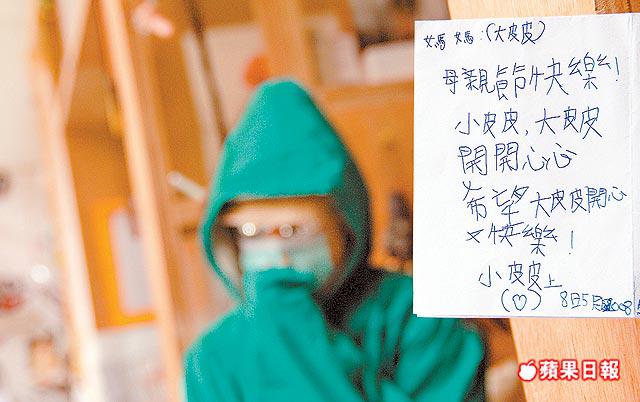 媽媽:(大皮皮)
母親節快樂!
小皮皮,大皮皮
開開心心
希望大皮皮開心
又快樂!
小皮皮上
(♡)
蘋果日報